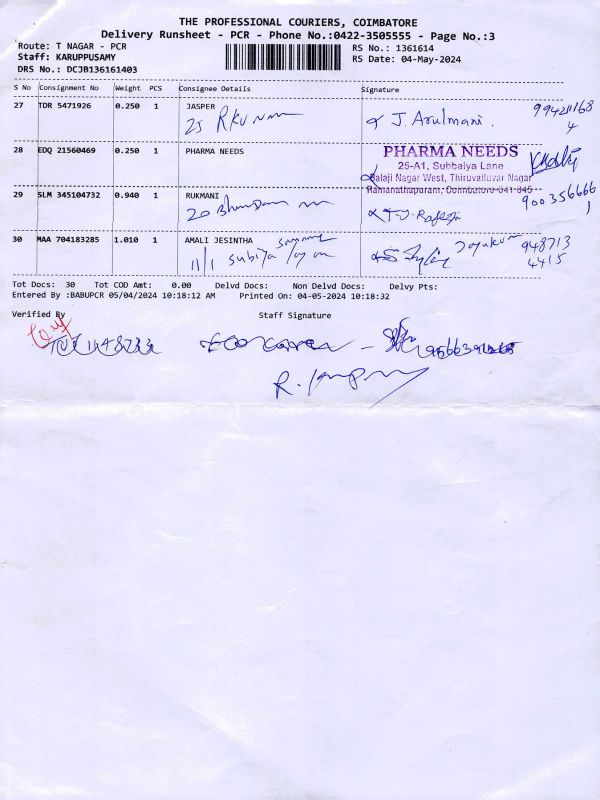 THE PROFESSIONAL COURIERS, COIMBATORE
Delivery Runsheet - PCR - Phone No.:0422-3505555 - Page No.:3
Route: T NAGAR - PCR RS No.: 1361614
Staff: KARUPPUSAMY RS Date: 04-May-2024
DRS No.: DCJB136161403
S No Consignment No Weight PCS Consignee Details Signature
27 TDR 5471926 0.250 1 JASPER
25 J. Arulmani.
28 EDQ 21560469 0.250 1 PHARMA NEEDS
PHARMA NEEDS
25-A1, Subbaiya Lane
Balaji Nagar West, Thiruvalluvar Nagar
Ramanathapuram, Coimbatore-641 045
29 SLM 345104732 0.940 1 RUKMANI
20
30 MAA 704183285 1.010 1 AMALI JESINTHA
11/1 948713
4415
Tot Docs: 30 Tot COD Amt: 0.00 Delvd Docs: Non Delvd Docs: Delvy Pts:
Entered By :BABUPCR 05/04/2024 10:18:12 AM Printed On: 04-05-2024 10:18:32
Verified By Staff Signature